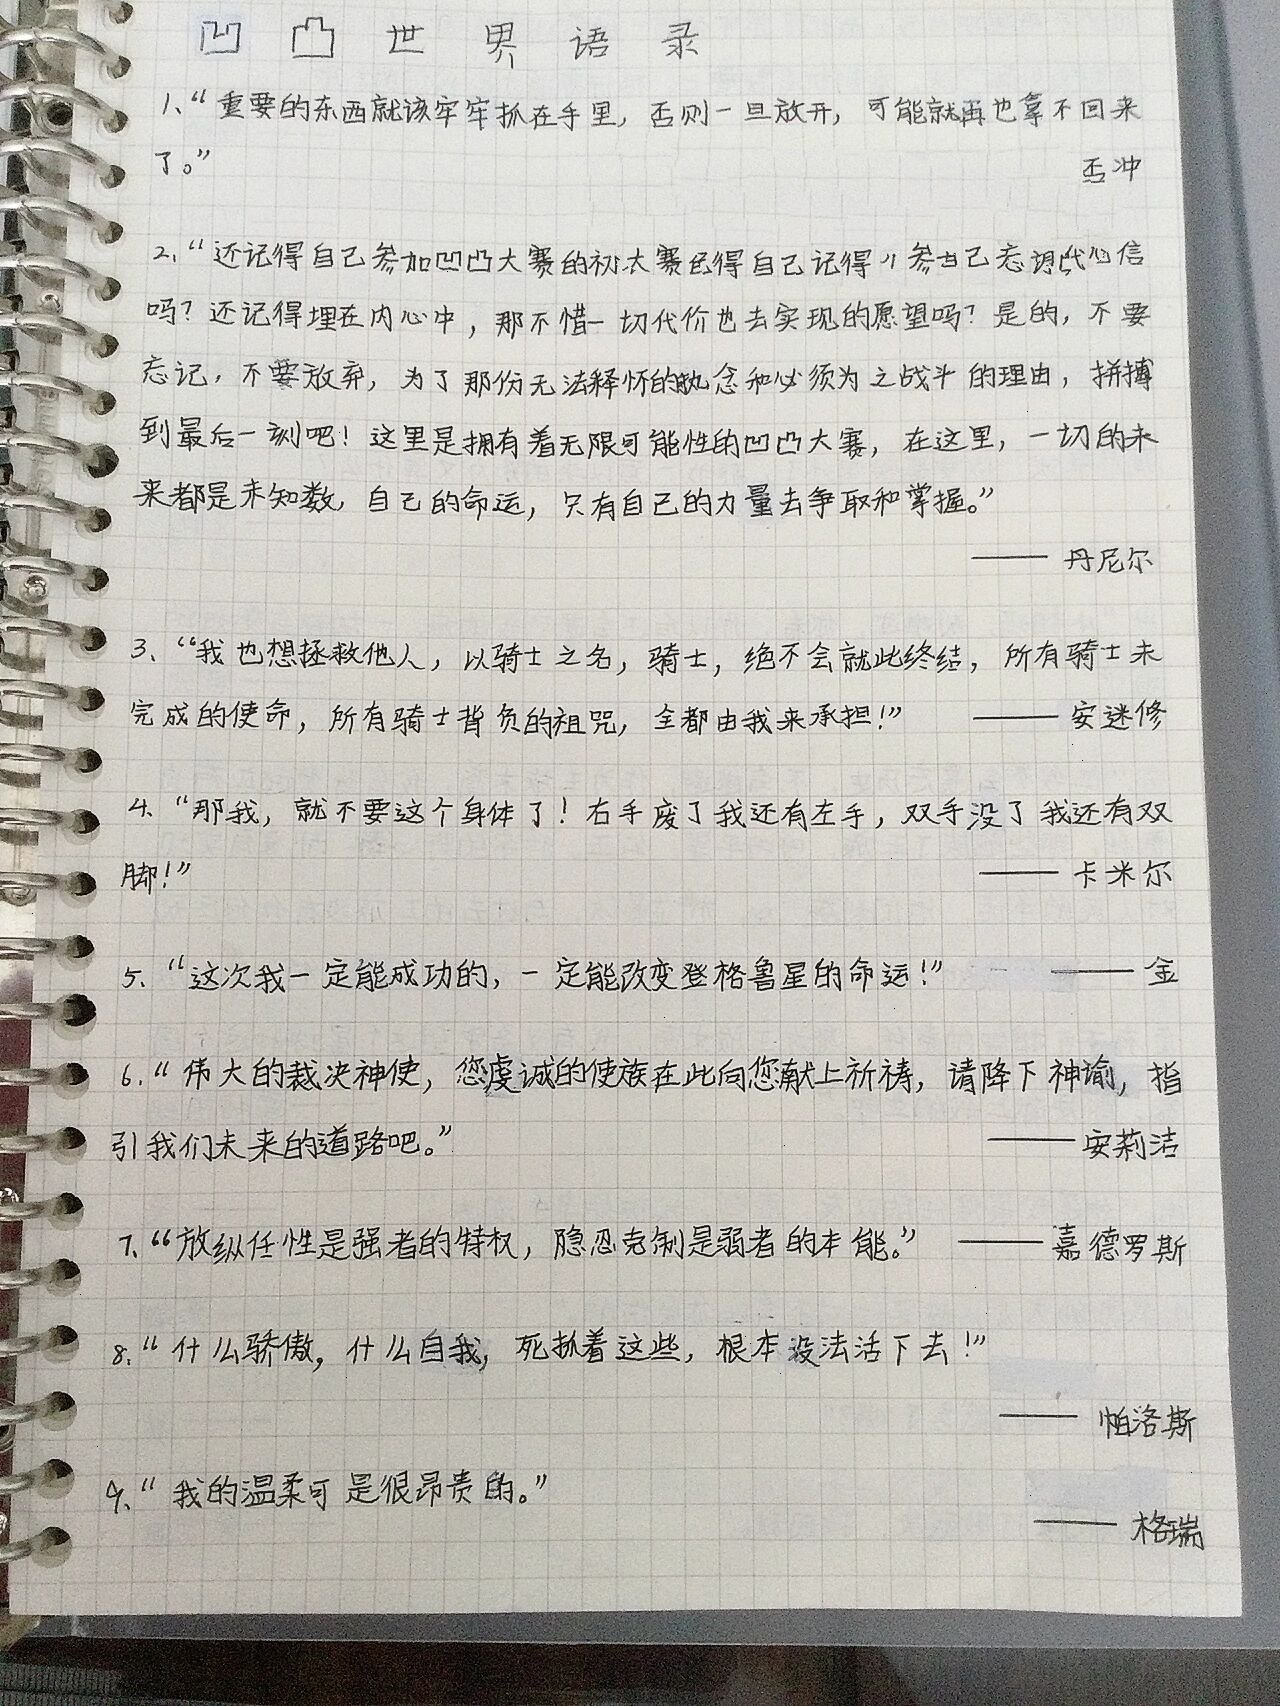 凹凸世界语录
1、“重要的东西就该牢牢抓在手里，否则一旦放开，可能就再也拿不回来
了。” 否冲
2、“还记得自己参加凹凸大赛的初大赛
吗？还记得埋在内心中，那不惜一切代价也去实现的愿望吗？是的，不要
忘记，不要放弃，为了那份无法释怀的执念和必须为之战斗的理由，拼搏
到最后一刻吧！这里是拥有着无限可能性的凹凸大赛，在这里，一切的未
来都是未知数，自己的命运，只有自己的力量去争取和掌握。”
——丹尼尔
3、“我也想拯救他人，以骑士之名，骑士，绝不会就此终结，所有骑士未
完成的使命，所有骑士背负的祖咒，全都由我来承担！” ——安迷修
4、“那我，就不要这个身体了！右手废了我还有左手，双手没了我还有双
脚！” ——卡米尔
5、“这次我一定能成功的，一定能改变登格鲁星的命运！” ——金
6、“伟大的裁决神使，您虔诚的使族在此向您献上祈祷，请降下神谕，指
引我们未来的道路吧。” ——安莉洁
7、“放纵任性是强者的特权，隐忍克制是弱者的本能。” ——嘉德罗斯
8、“什么骄傲，什么自我，死抓着这些，根本没法活下去！”
——帕洛斯
9、“我的温柔可是很昂贵的。”
——格瑞